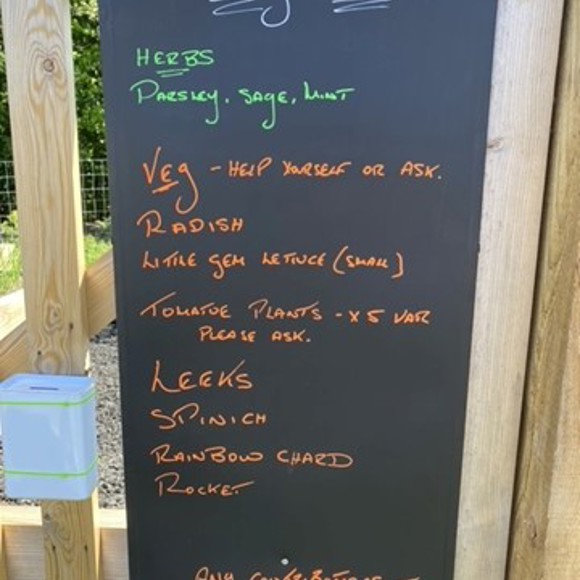 HERBS
PARSLEY, SAGE, MINT
VEG - HELP YOURSELF OR ASK.
RADISH
LITTLE GEM LETTUCE (SMALL)
TOMATOE PLANTS - X 5 VAR
PLEASE ASK.
LEEKS
SPINICH
RAINBOW CHARD
ROCKET
ANY